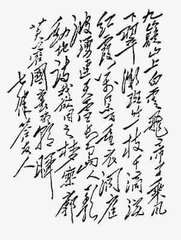 九嶷山上白雲飛帝子乘風
下翠微斑竹一枝千滴淚
紅霞萬朵百重衣洞庭
波湧連天雪長島人歌
動地詩我欲因之夢寥廓
芙蓉國裏盡朝暉
七律答友人